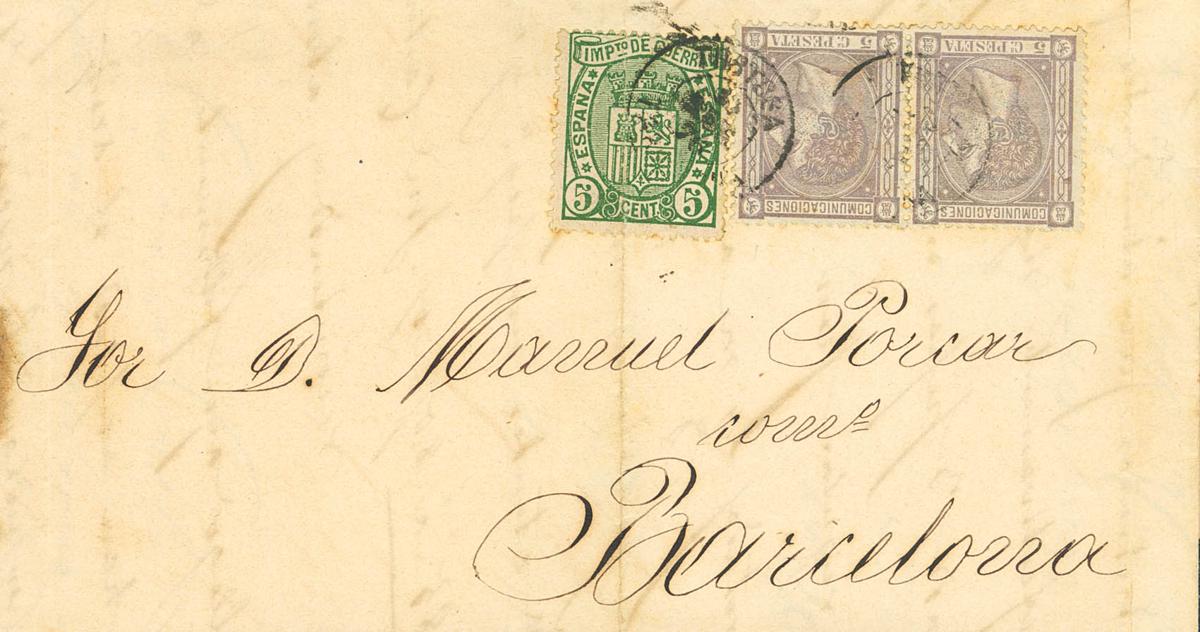 IMPTO DE GUERRA
ESPAÑA ESPAÑA
5 CENT. 5
5 C. PESETA
COMUNICACIONES
5 C. PESETA
COMUNICACIONES
TORTOSA
Sor D. Manuel Porcar
comº
Barcelona